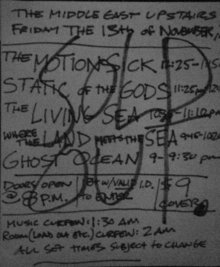 THE MIDDLE EAST UPSTAIRS
FRIDAY THE 13th OF NOVEMBER
THE MOTION SICK 11:25-
STATIC OF THE GODS
THE LIVING SEA
WHERE THE LAND MEETS THE SEA
GHOST OCEAN 9-9:30 PM
DOORS OPEN @ 8 P.M.
18+ W/VALID I.D. TO ENTER
$9 COVER
MUSIC CURFEW: 1:30 AM
ROOM (LOAD OUT ETC.) CURFEW: 2 AM
ALL SET TIMES SUBJECT TO CHANGE
SOLD